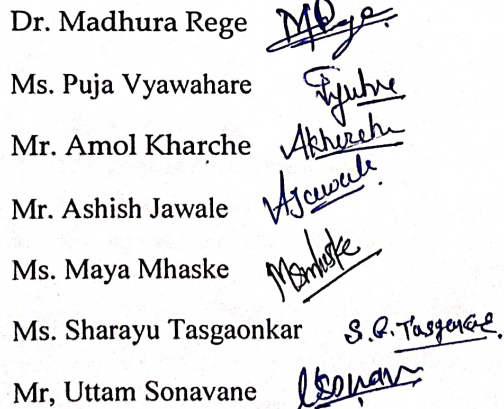 Dr. Madhura Rege
Ms. Puja Vyawahare
Mr. Amol Kharche
Mr. Ashish Jawale AJawale
Ms. Maya Mhaske Mmhaske
Ms. Sharayu Tasgaonkar
Mr, Uttam Sonavane